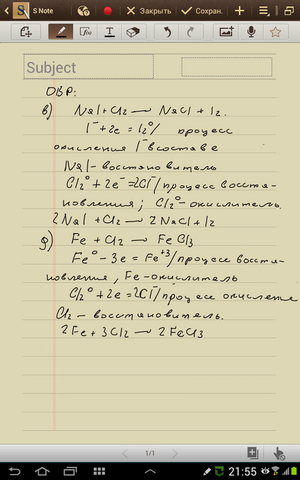 S Note
Закрыть
Сохран.
Subject
ОВР:
в) NaI + Cl2 → NaCl + I2.
I⁻ + 2e = I2⁰/ процесс
окисления I⁻ в составе
NaI - восстановитель
Cl2⁰ + 2e⁻ = 2Cl⁻/ процесс восста-
новления; Cl2⁰ - окислитель.
2NaI + Cl2 → 2NaCl + I2
д) Fe + Cl2 → FeCl3
Fe⁰ - 3e = Fe⁺³/ процесс восста-
новления, Fe - окислитель
Cl2⁰ + 2e = 2Cl⁻/ процесс окисление
Cl2 - восстановитель.
2Fe + 3Cl2 → 2FeCl3
1/1
21:55